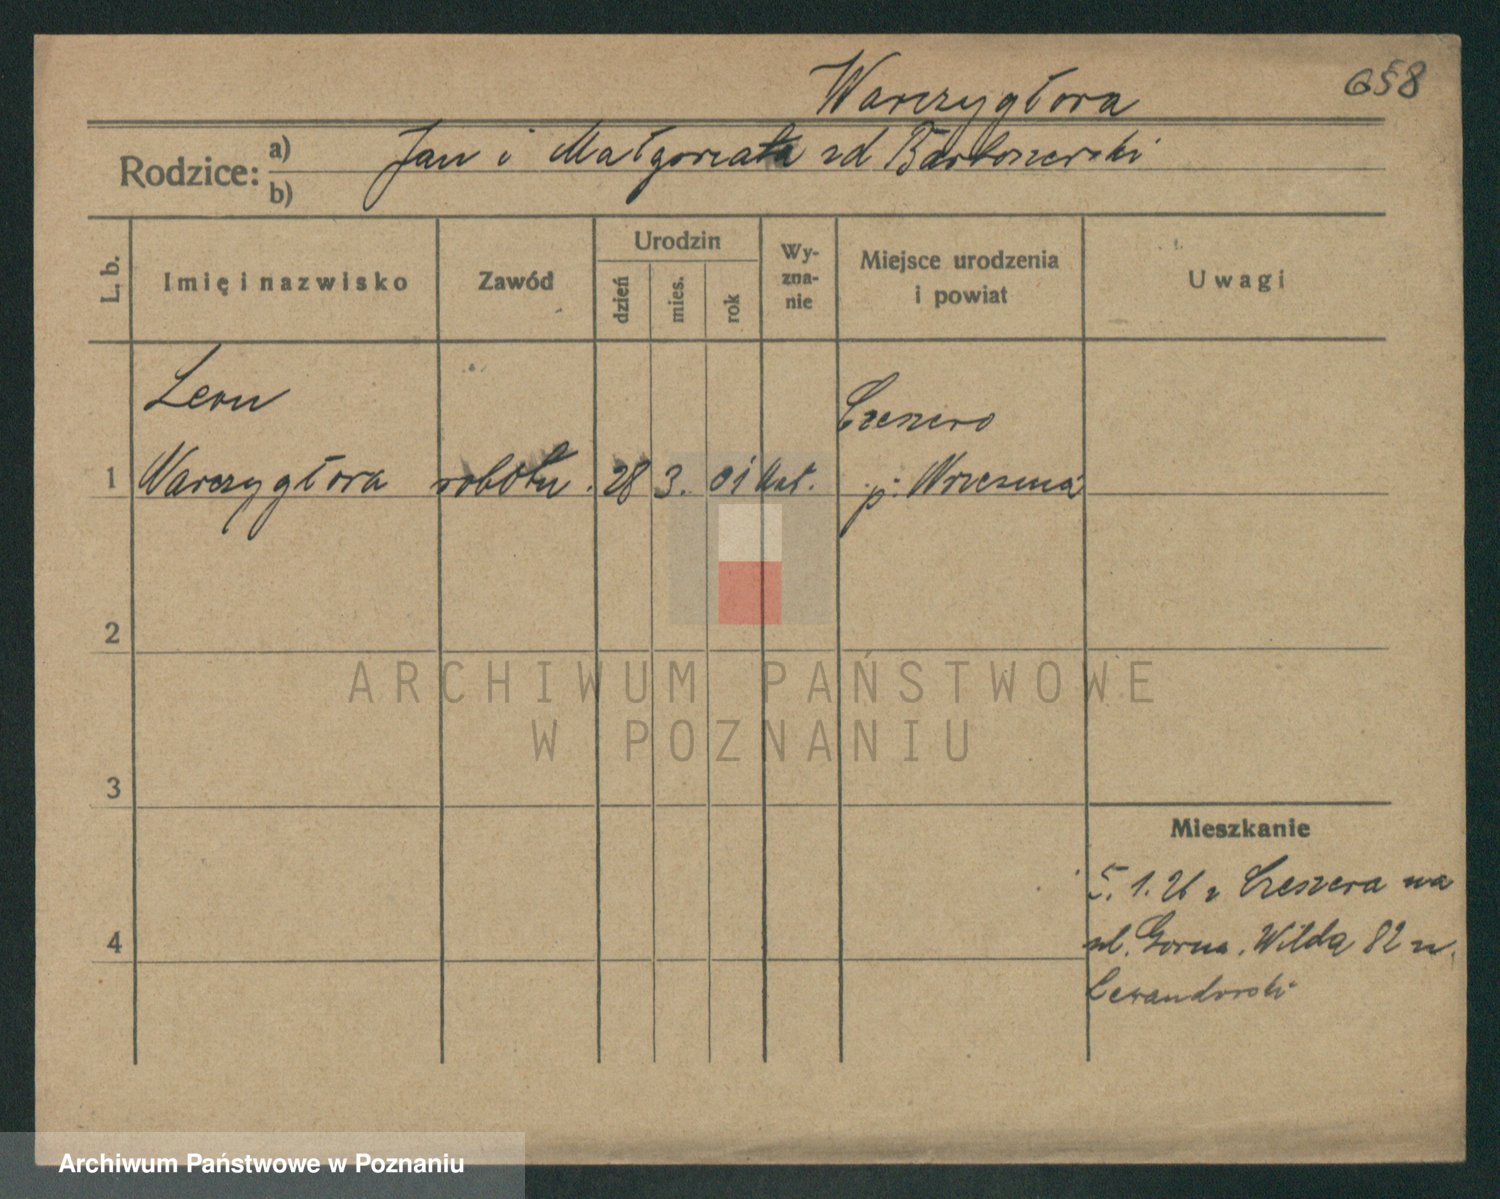 Warczygłora
658
Rodzice: a) b)
Jan i Małgorzata zd Bartoszewski
L. b.
Imię i nazwisko
Zawód
Urodzin
dzień
mies.
rok
Wy-
zna-
nie
Miejsce urodzenia
i powiat
Uwagi
Leon
Czeszewo
1 Warczygłora robotn. 28 3. 01 kat. p. Września
2
3
4
Mieszkanie
5.1.26 z Czeszewa na
ul. Górna. Wilda 82 u.
Lewandowski
ARCHIWUM PAŃSTWOWE
W POZNANIU
Archiwum Państwowe w Poznaniu